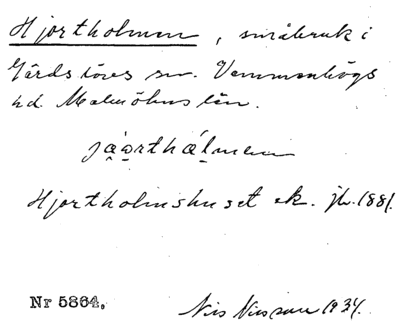 Hjortholmen, småbruk i
Gärdslövs sn. Vemmenhögs
hd. Malmöhus län.
jáo̯rthál̥menn
Hjortholmshuset ek. jb. 1881.
Nr 5864.
Nils Nilsson 1934.